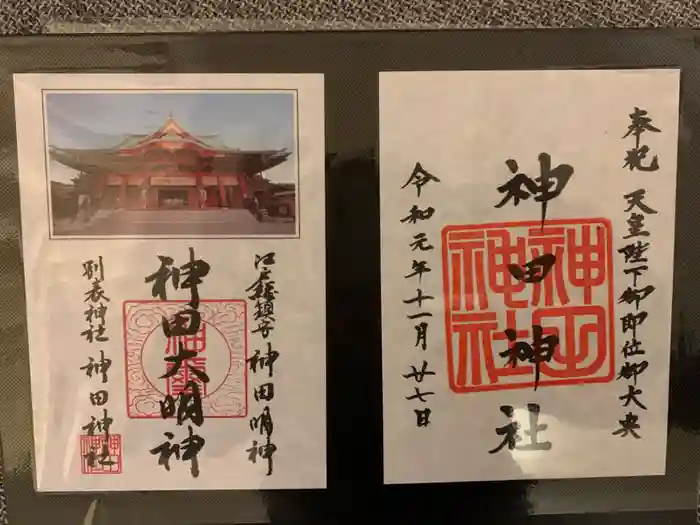 奉祝 天皇陛下御即位御大典
神田神社
令和元年十一月廿七日
江戸総鎮守 神田明神
神田大明神
別表神社 神田神社